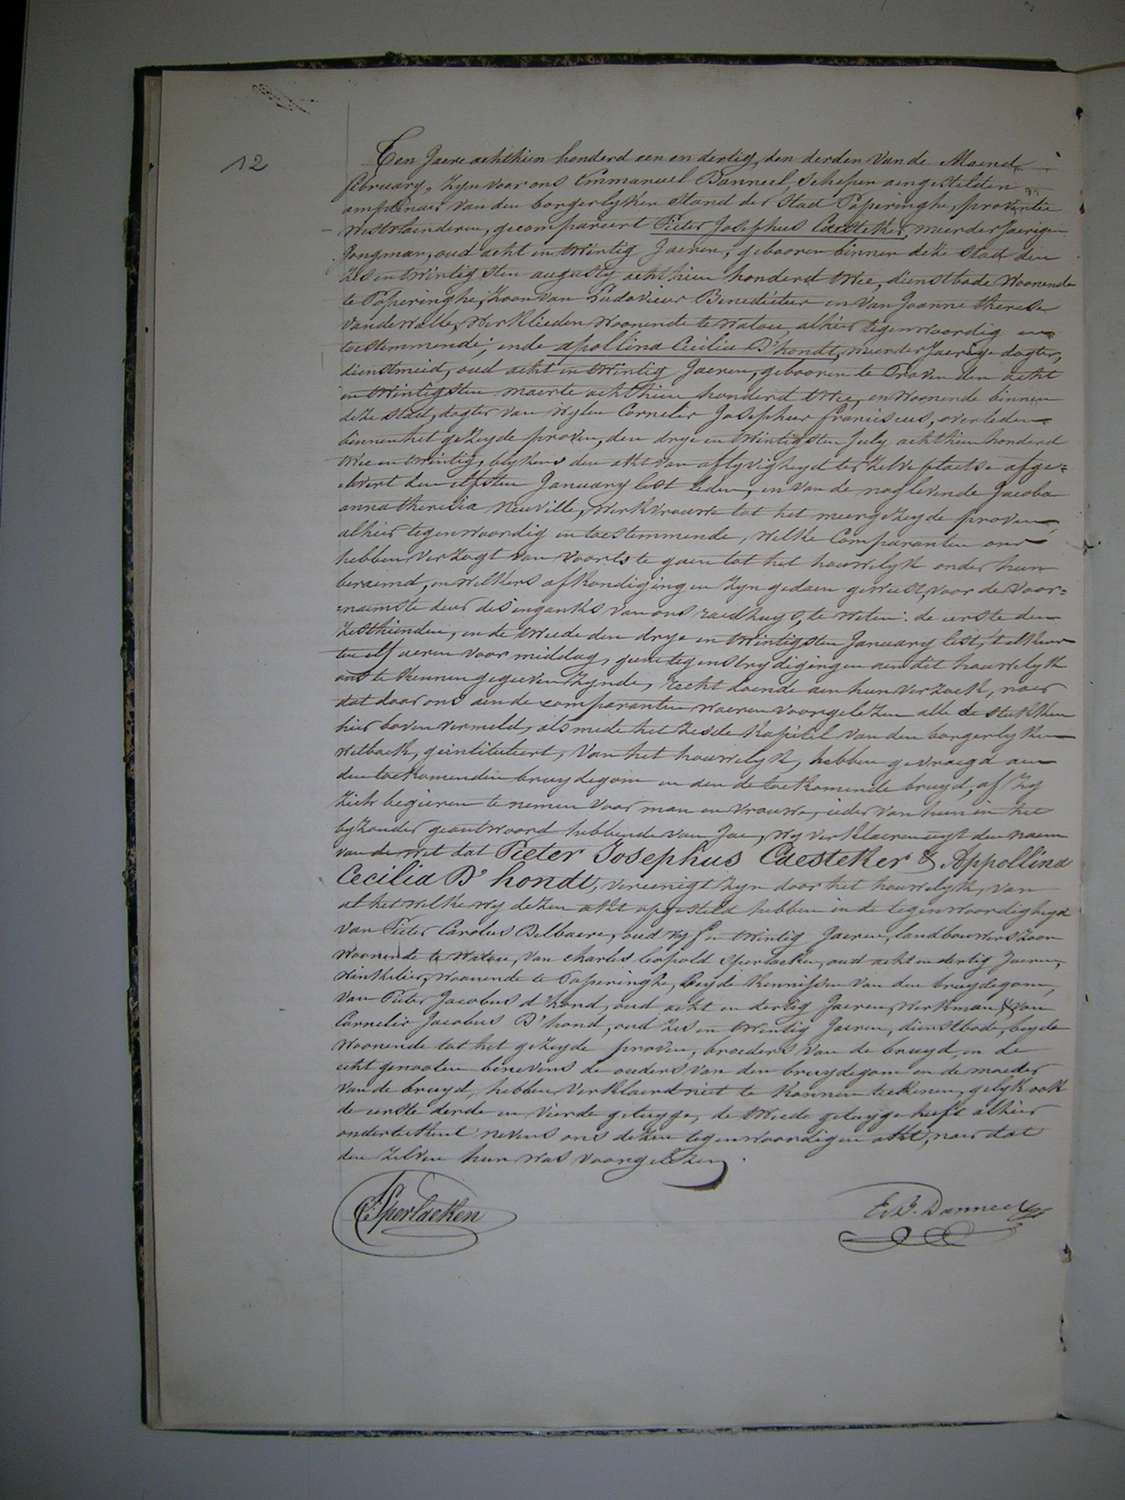 12
Ten Jaere achthien honderd een en dertig, den derden van de Maend
february, zyn voor ons Emmanuel Banneel, schepen aengestelden
amptenaer van den borgerlyken Stand der Stad Poperinghe, provintie
Westvlaenderen, gecompareert Pieter Josephus Caesteker, meerderjaerigen
Jongman, oud acht en twintig Jaeren, gebooren binnen deze Stad den
zes en twintigsten augusty achthien honderd twee, dienstbode woonende
te Poperinghe, zoon van Ludovicus Benedictus en van Joanne Therese
Vandewalle, werklieden woonende te Watou, alhier tegenwoordig en
toestemmende; ende apollina Cecilia D'hondt, meerderjaerige dogter,
dienstmeid, oud acht en twintig Jaeren, gebooren te Proven den acht
en twintigsten maerte achthien honderd twee, en woonende binnen
deze stad, dogter van wylen Cornelis Josephus franciscus, overleden
binnen het gezeyde proven, den drye en twintigsten July achthien honderd
twee en twintig, blykens den akte van aflyvigheyd ter zelve plaetse afge=
levert den elfsten January lest leden, en van de noglevende Jacoba
anna theresia Neuville, werkvrouwe tot het meergezeyde proven
alhier tegenwoordig en toestemmende, welke Comparanten ons
hebben verzogt van voorts te gaen tot het houwelyk onder hun
beraemd, en welkers afkondigingen zyn gedaen geweest, voor de voor=
naemste deur des ingangks van ons raedhuys, te weten: de eerste den
zesthienden, en de tweede den drye en twintigsten January lest, telkens
ten elf ueren voor middag, geene tegenstrydigingen aen dit houwelyk
ons te kennen gegeeven zynde, recht doende aen hun verzoek, naer
dat door ons aen de comparanten waeren voorgelezen alle de stukken
hier boven vermeld, als mede het zesde kapitel van den borgerlyken
wetboek, geintituleert, van het houwelyk, hebben gevraegd aen
den toekomenden bruydegom en aen de toekomende bruyd, of zy
zich begeeren te nemen voor man en vrouwe, ieder van hun in het
byzonder geantwoord hebbende van Jae, wy verklaeren uyt den naem
van de wet dat Pieter Josephus Caesteker & Appollina
Cecilia D'hondt, vereenigt zyn door het houwelyk, van
al het welke wy dezen akt opgesteld hebben in de tegenwoordigheyd
van Pieter Carolus Delbaere, oud vyf en twintig Jaeren, landbouwers zoon
woonende te Watou, van Charles Leopold Sperlaeken, oud acht en dertig Jaeren,
winkelier, woonende te Poperinghe, beyde kennissen van den bruydegom,
van Pieter Jacobus d'hond, oud acht en dertig Jaeren, werkman, & van
Cornelis Jacobus D'hond, oud zes en twintig Jaeren, dienstbode, beyde
woonende tot het gezeyde proven, broeders van de bruyd, en de
echtgenooten benevens de ouders van den bruydegom en de moeder
van de bruyd, hebben verklaerd niet te konnen teekenen, gelyk ook
de eerste derde en vierde getuyge, de tweede getuyge heeft alhier
onderteekent nevens ons dezen tegenwoordigen akt, naer dat
den zelven hun was voorgelezen.
Sperlaeken
E. D. Banneel